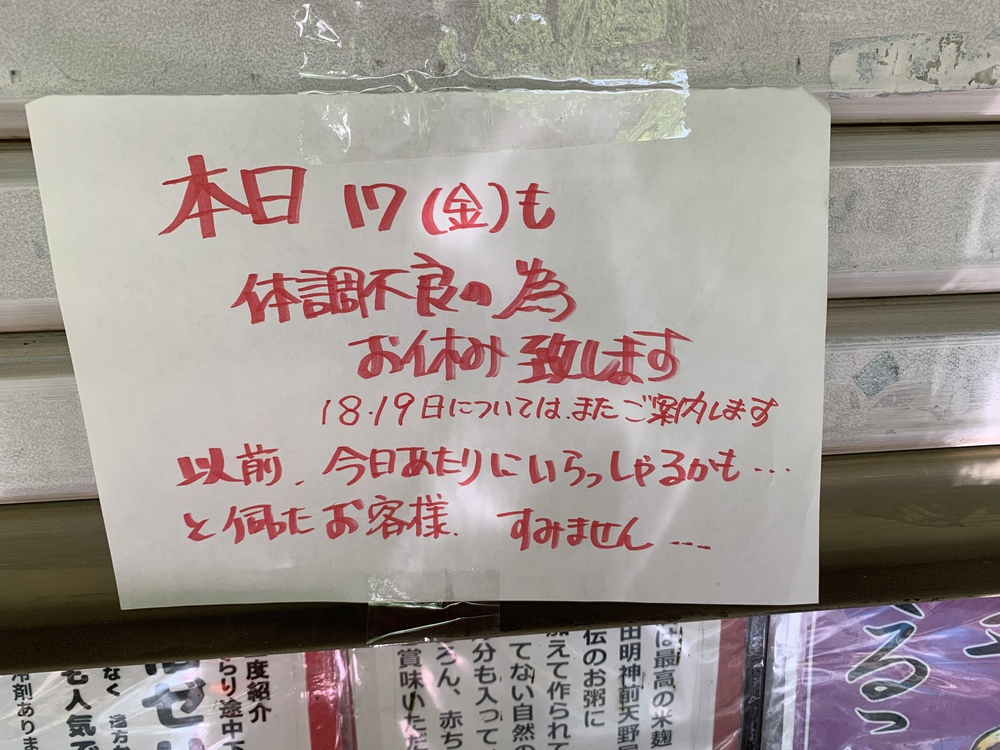 本日 17(金)も
体調不良の為
お休み致します
18.19日については.またご案内します
以前、今日あたりにいらっしゃるかも…
と伺ったお客様. すみません…
は最高の米麹
田明神前天野屋
伝のお粥に
加えて作られて
てない自然の
分も入って
ろん、赤ち
賞味いただ
度紹介
らり途中下
ゼ
なく
遠方か
も人気で
剤ありま
るっ